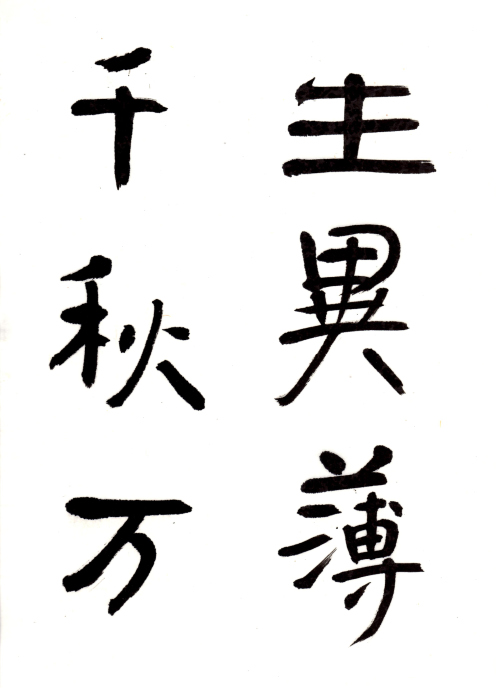 生異薄
千秋万